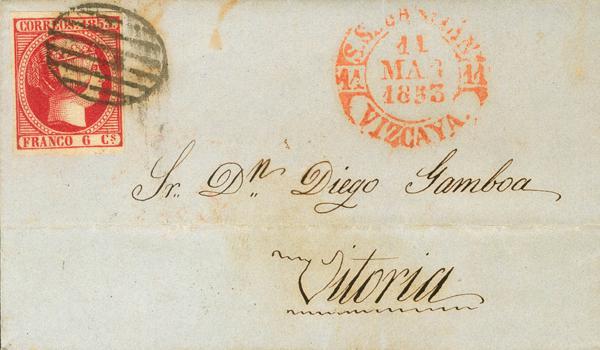 CORREOS 1853
FRANCO 6 Cs
S.S. BASTIAN.
11
11
MAR
11
1853
VIZCAYA.
Sr. Dn. Diego Gamboa
Vitoria